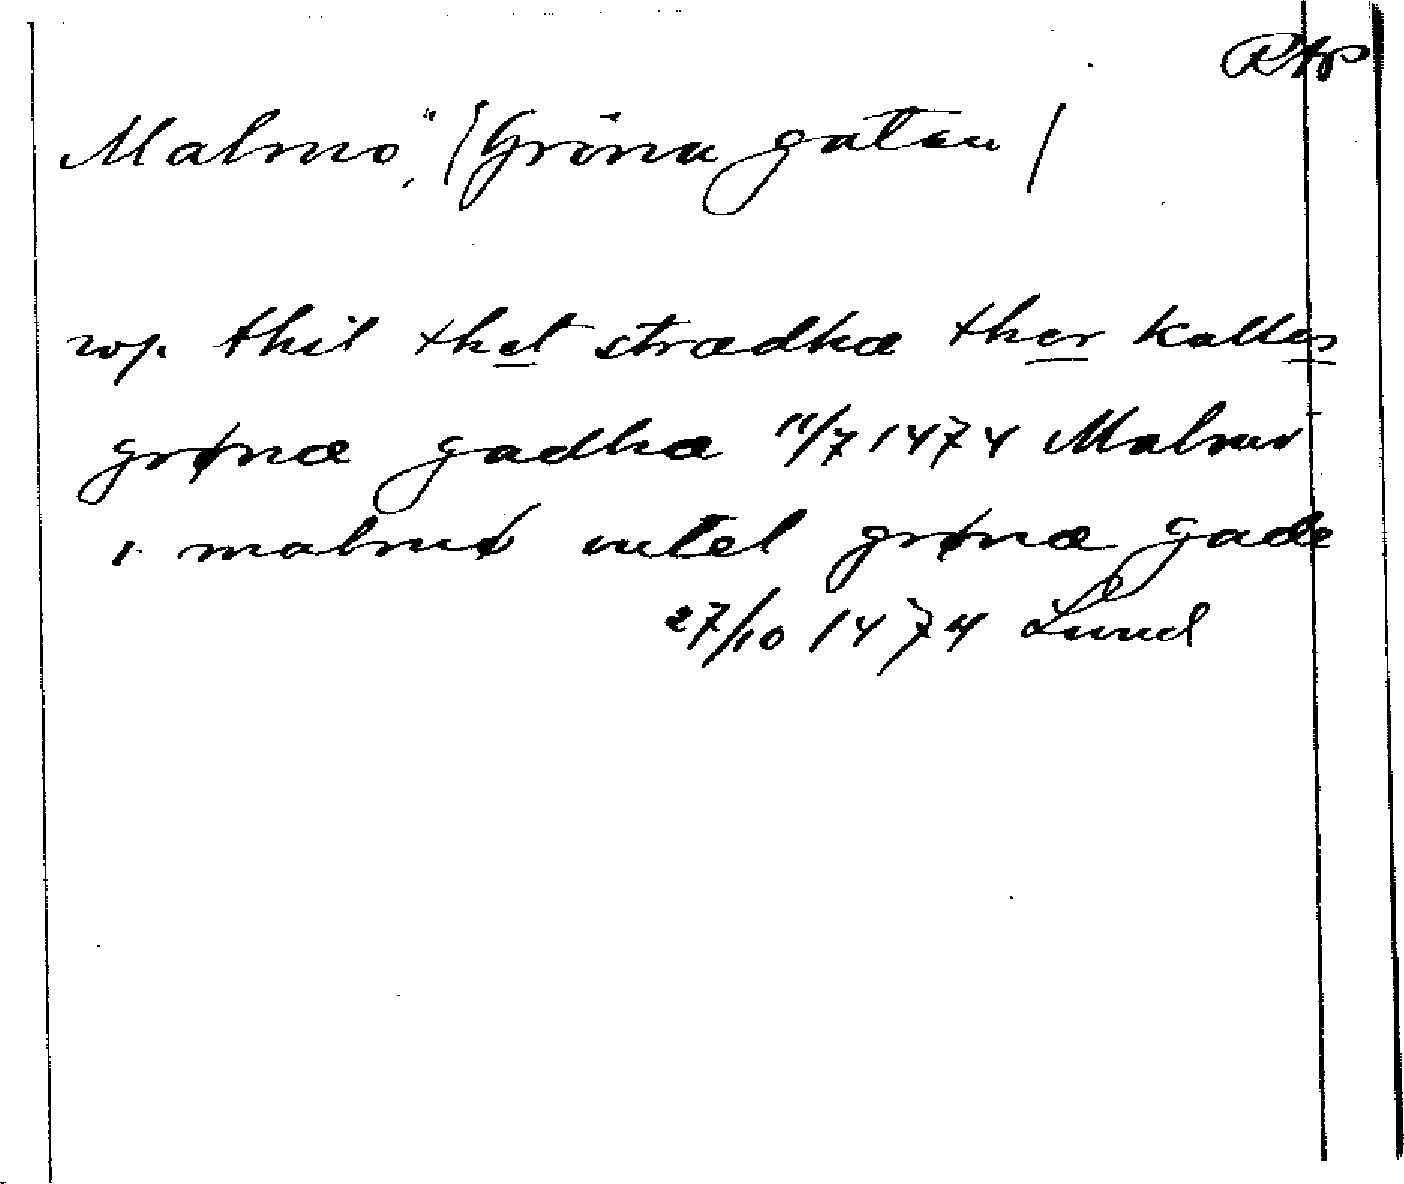 RAP
Malmö, (Gröna gatan)
wp. thil thet strædhæ ther kalles
grønæ gadhæ 11/7 1474 Malmö
i malmø vttel grønæ gade
27/10 1474 Lund